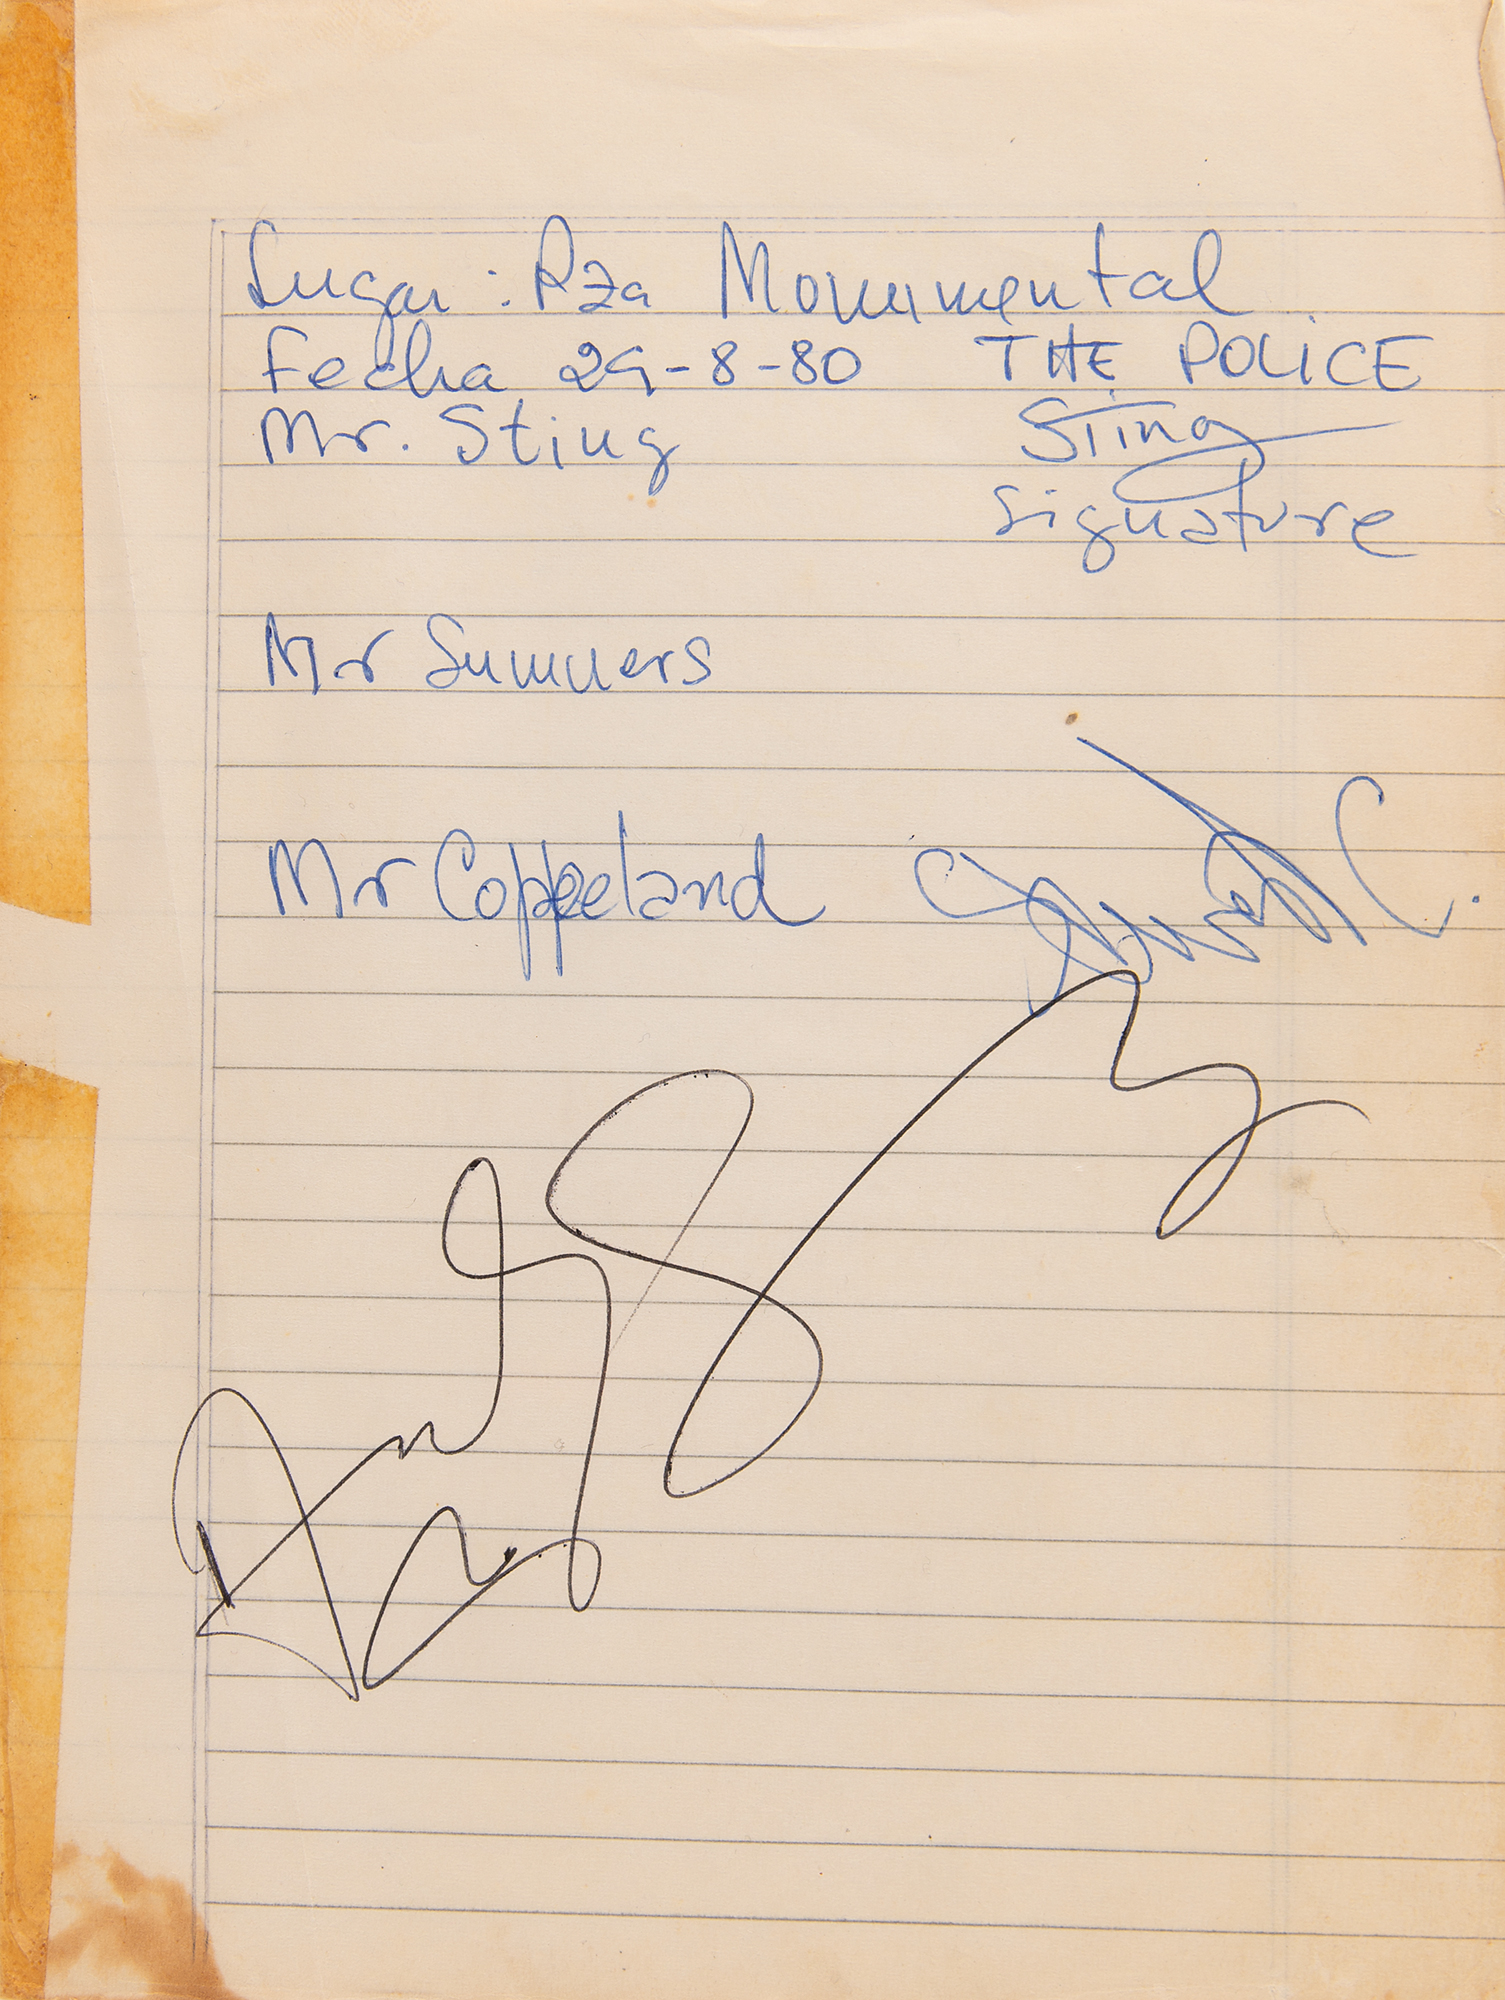 Lugar: Pza Monumental
Fecha 29-8-80 THE POLICE
Mr. Sting Sting
Signature
Mr Summers
Mr Coppeland
Andy Summers